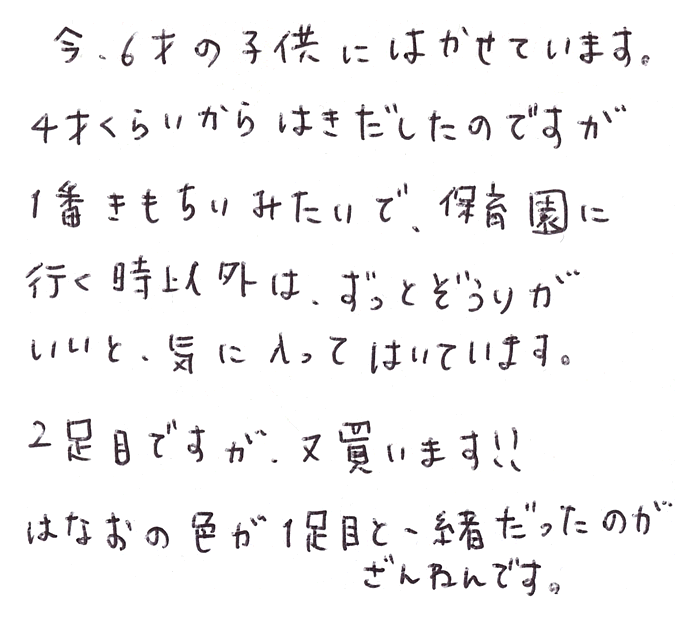 今、6才の子供にはかせています。
4才くらいからはきだしたのですが
1番きもちいみたいで、保育園に
行く時以外は、ずっとぞうりが
いいと、気に入ってはいています。
2足目ですが、又買います!!
はなおの色が1足目と一緒だったのが
ざんねんです。